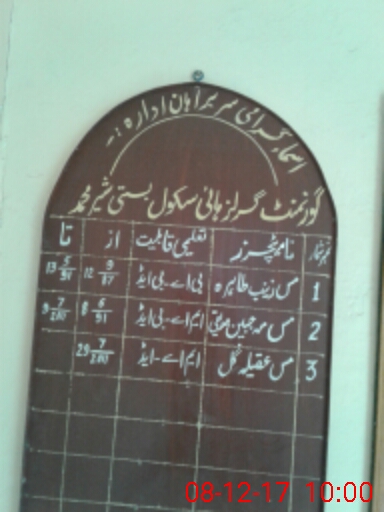 اسمائے گرامی سربراہان ادارہ :-
گورنمنٹ گرلز ہائی سکول بستی شیر محمد
نمبر شمار نام ٹیچرز تعلیمی قابلیت از تا
1 مس زینب طاہرہ بی اے - بی ایڈ 12 9/87 13 5/91
2 مس مہ جبین ایم اے - بی ایڈ 8 6/91
3 مس عقیلہ گل ایم اے - ایڈ 29
08-12-17 10:00